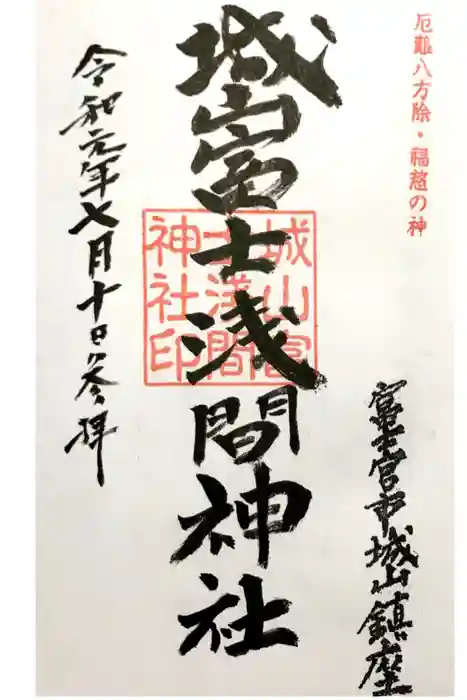 厄難八方除・福慈の神
富士宮市城山鎮座
城山富士浅間神社
城山富士浅間神社印
令和元年七月十日参拝